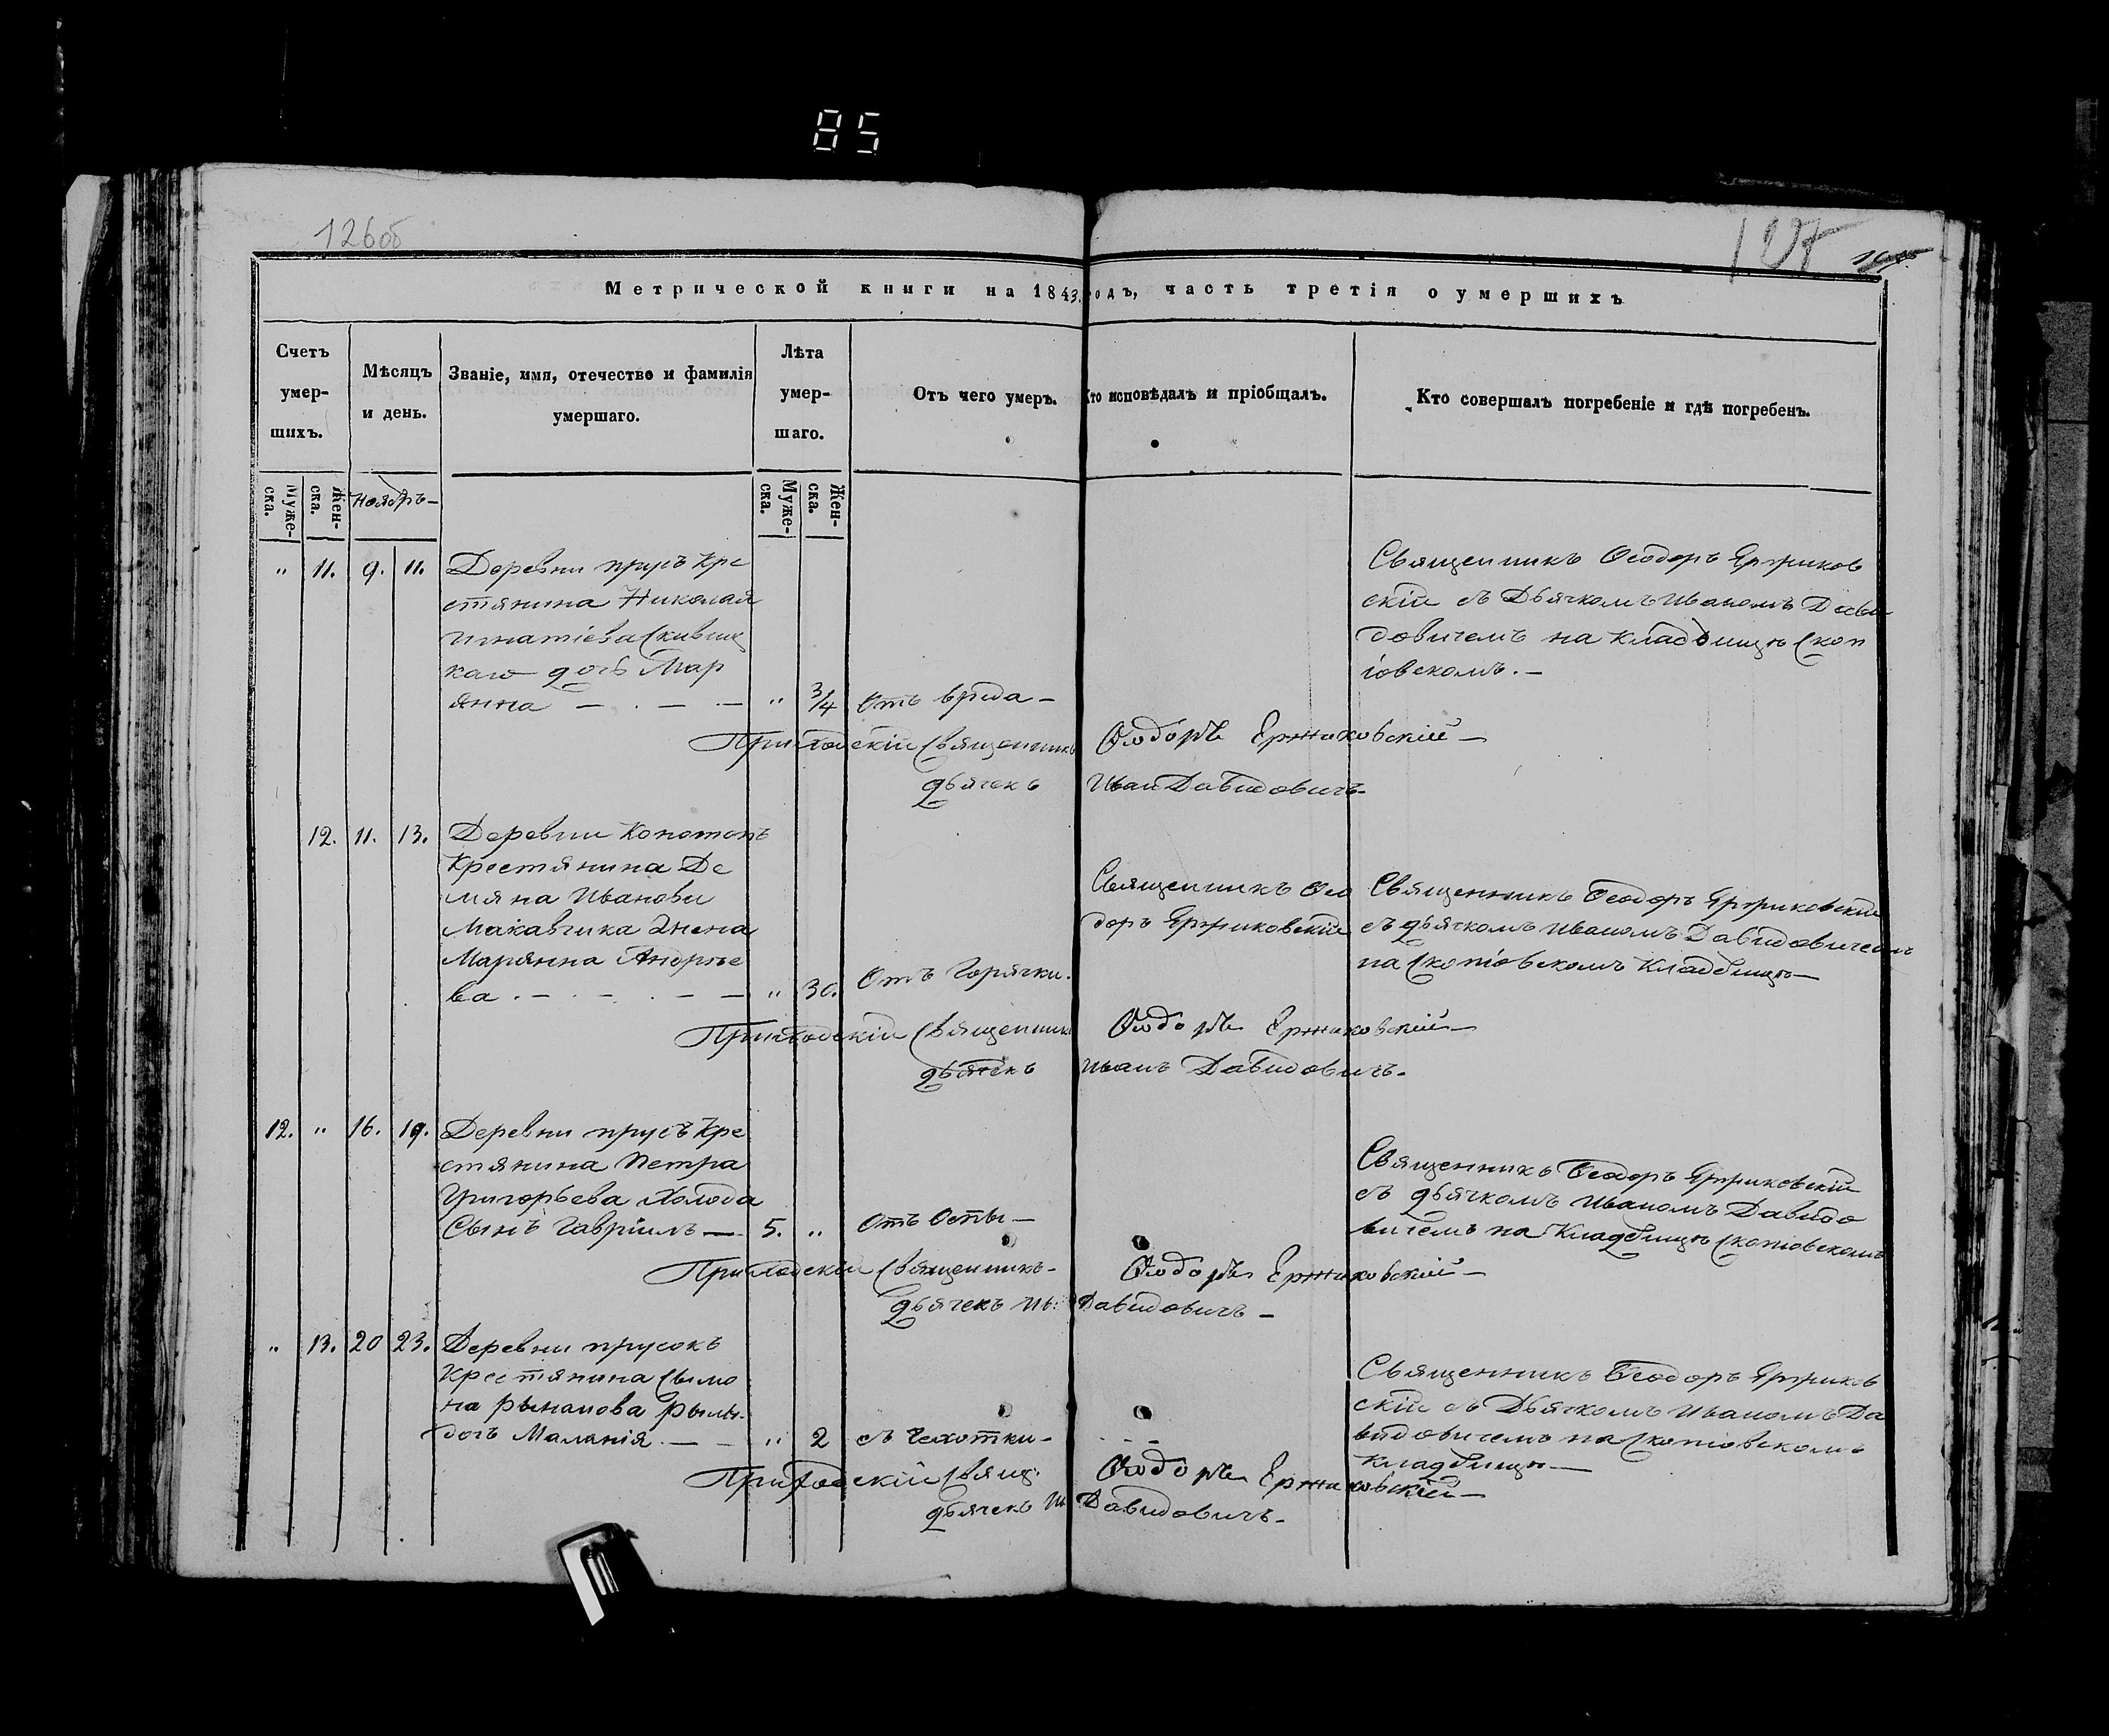 85
126об
127
Метрической книги на 1843 годъ, часть третія о умершихъ
Счетъ умер-шихъ.
Мѣсяцъ и день.
Званіе, имя, отечество и фамилія умершаго.
Лѣта умер-шаго.
Отъ чего умеръ.
Кто исповѣдалъ и пріобщалъ.
Кто совершалъ погребеніе и гдѣ погребенъ.
Муже-ска.
Жен-ска.
Ноябрь—
Муже-ска.
Жен-ска.
" 11. 9. 11. Деревни прусъ Кре
стянина Николая
Игнатіева Скивиц
каго дочь Мар
янна — . — . — " 3/4 Отъ врида —
Священникъ Ѳеодоръ Ержиков
скій съ Дьячкомъ Иваномъ Дави
довичемъ на Кладбищѣ Скоп
іовскомъ. —
Приходскій Священникъ Ѳеодоръ Ержиковскій —
дьячекъ Иван Давидовичъ.
12. 11. 13. Деревни Конотопъ
Крестянина Де
мяна Иванови
Макавчика Жена
Марянна Андрѣе
ва . — . — . — — " 30. Отъ Горячки.
Священникъ Ѳео
доръ Ержиковскій
Священникъ Ѳеодоръ Ержиковскій
съ дьячкомъ Иваномъ Давидовичемъ
на Скопіовскомъ Кладбищѣ —
Приходскій Священникъ Ѳеодоръ Ержиковскій —
дьячекъ Иванъ Давидовичъ.
12. " 16. 19. Деревни прусъ Кре
стянина Петра
Григорьева Холода
Сынъ Гавріилъ — 5. " Отъ Оспы —
Священникъ Ѳеодоръ Ержиковскій
съ дьячкомъ Иваномъ Давидо
вичемъ на Кладбищѣ Скопіовскомъ
Приходскій Священникъ — Ѳеодоръ Ержиковскій —
дьячекъ Ив: Давидовичъ —
" 13. 20 23. Деревни прусокъ
Крестянина Сымо
на
дочь Маланія. — — " 2 съ Чехотки —
Священникъ Ѳеодоръ Ержиков
скій съ Дьячкомъ Иваномъ Да
видовичемъ на Скопіовскомъ
Кладбищѣ —
Приходскій Свящ: Ѳеодоръ Ержиковскій —
дьячекъ Ив Давидовичъ.